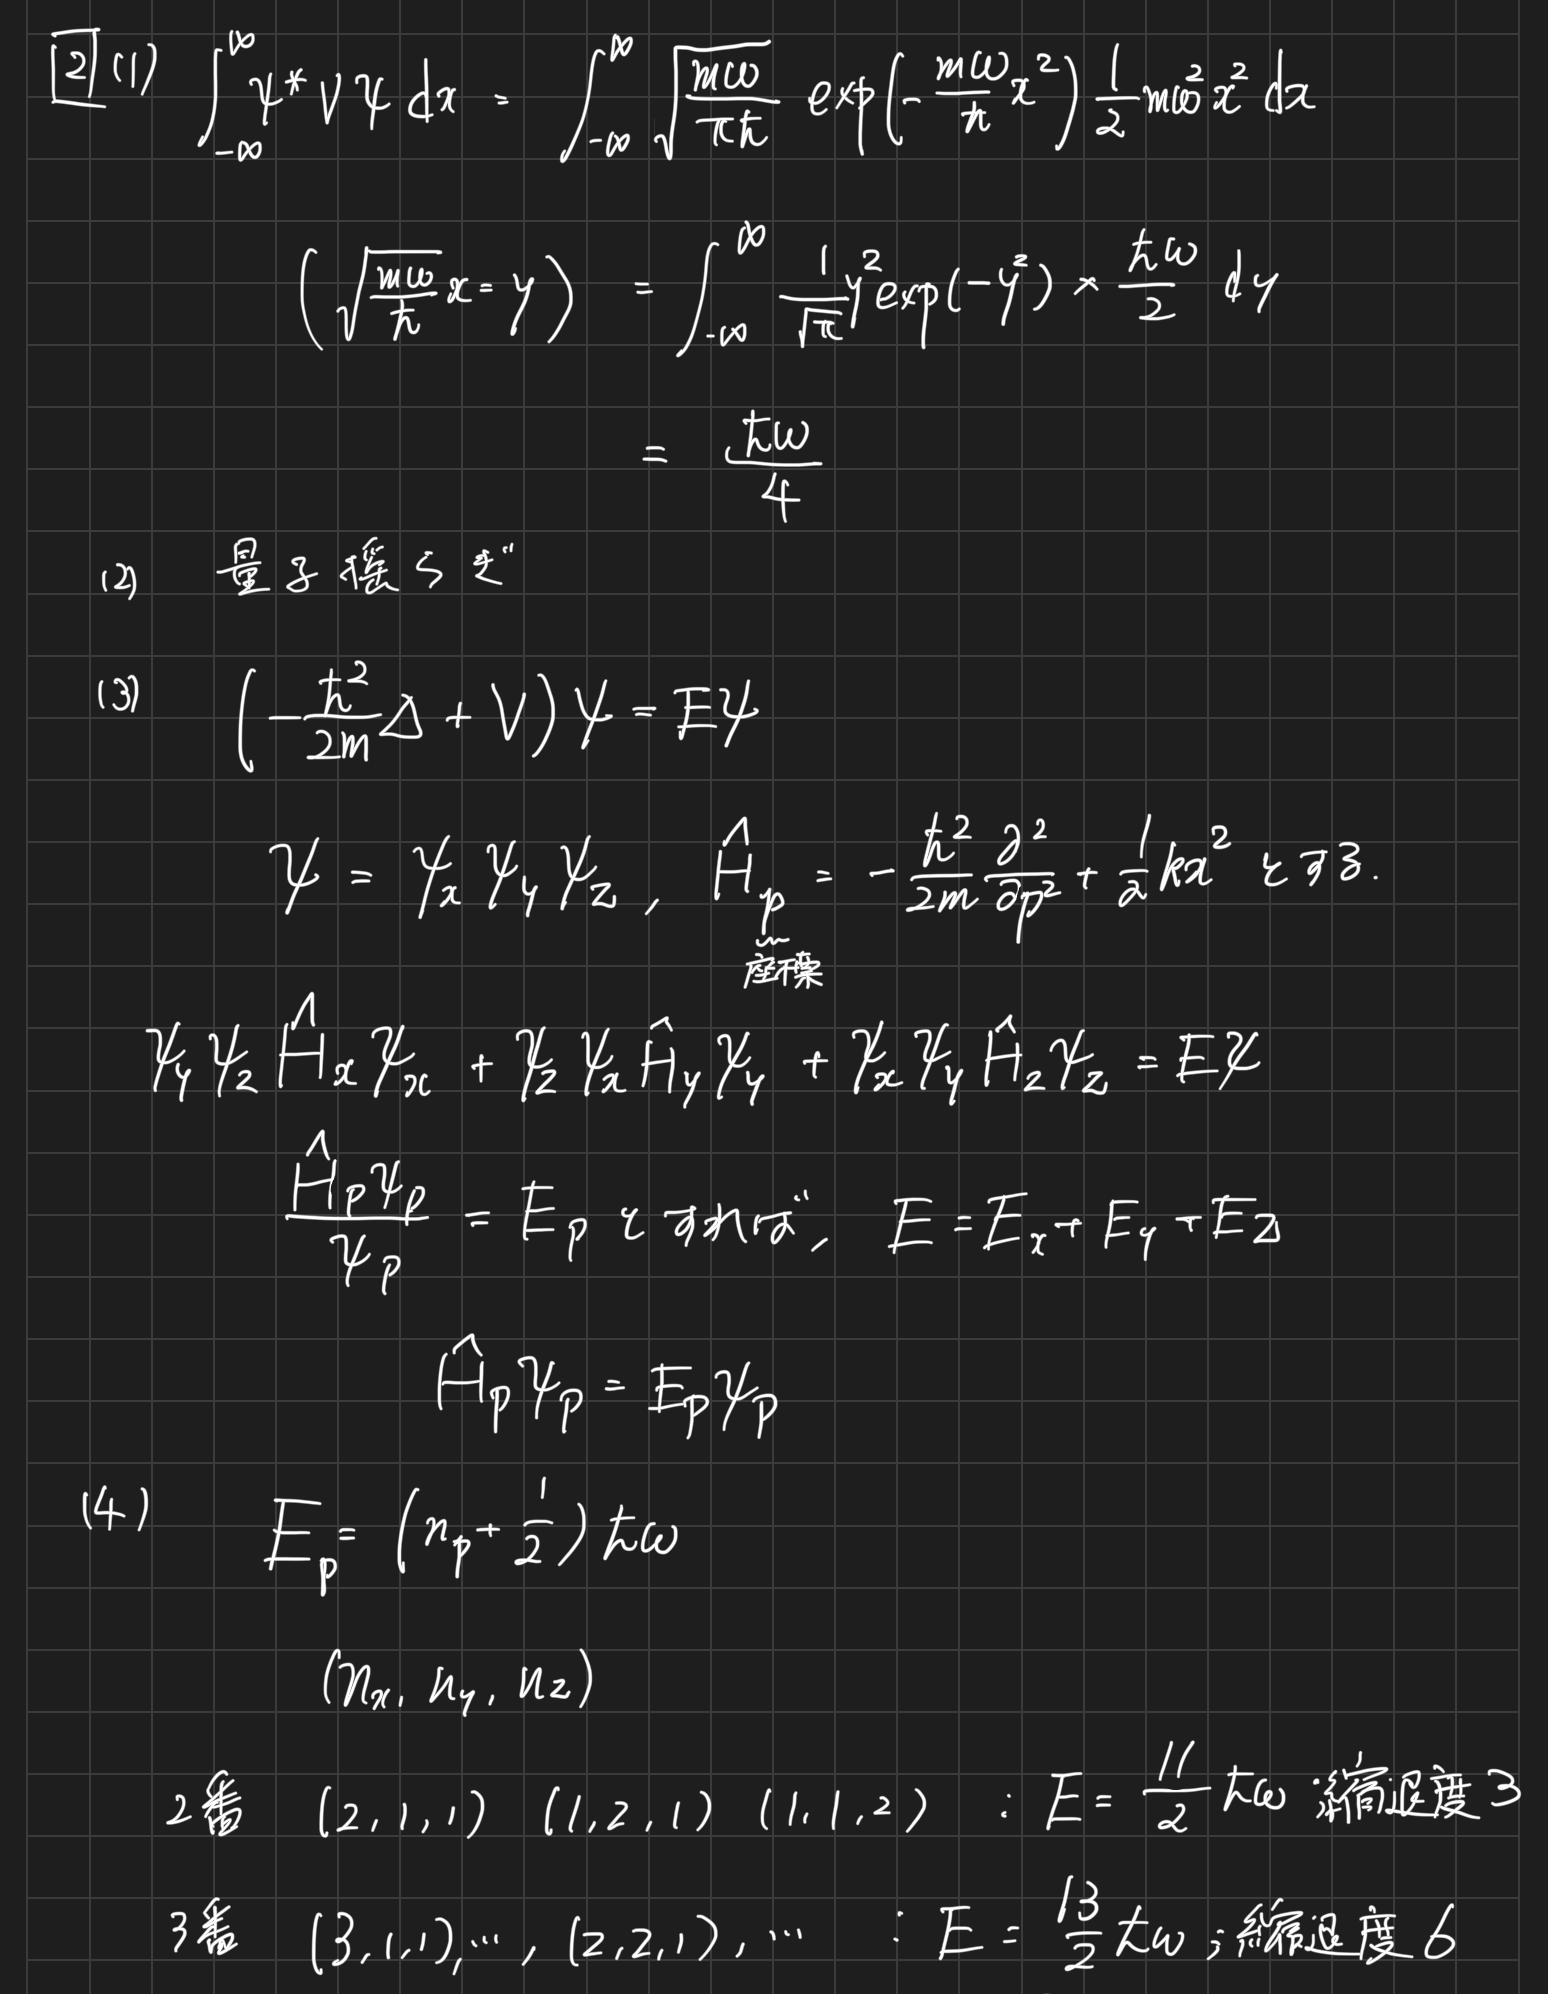 [2] (1) ∫_{-∞}^{∞} ψ* V ψ dx = ∫_{-∞}^{∞} √(mω/πħ) exp(-mω/ħ x²) 1/2 mω² x² dx
(√(mω/ħ) x = y) = ∫_{-∞}^{∞} 1/√π y² exp(-y²) × ħω/2 dy
= ħω/4
(2) 量子揺らぎ
(3) (-ħ²/2m Δ + V) ψ = Eψ
ψ = ψ_x ψ_y ψ_z , Ĥ_p = -ħ²/2m ∂²/∂p² + 1/2 kx² とする.
座標
ψ_y ψ_z Ĥ_x ψ_x + ψ_z ψ_x Ĥ_y ψ_y + ψ_x ψ_y Ĥ_z ψ_z = Eψ
Ĥ_p ψ_p / ψ_p = E_p とすれば, E = E_x + E_y + E_z
Ĥ_p ψ_p = E_p ψ_p
(4) E_p = (n_p + 1/2) ħω
(n_x, n_y, n_z)
2番 (2,1,1) (1,2,1) (1,1,2) : E = 11/2 ħω ;縮退度 3
3番 (3,1,1),…, (2,2,1), … : E = 13/2 ħω ;縮退度 6